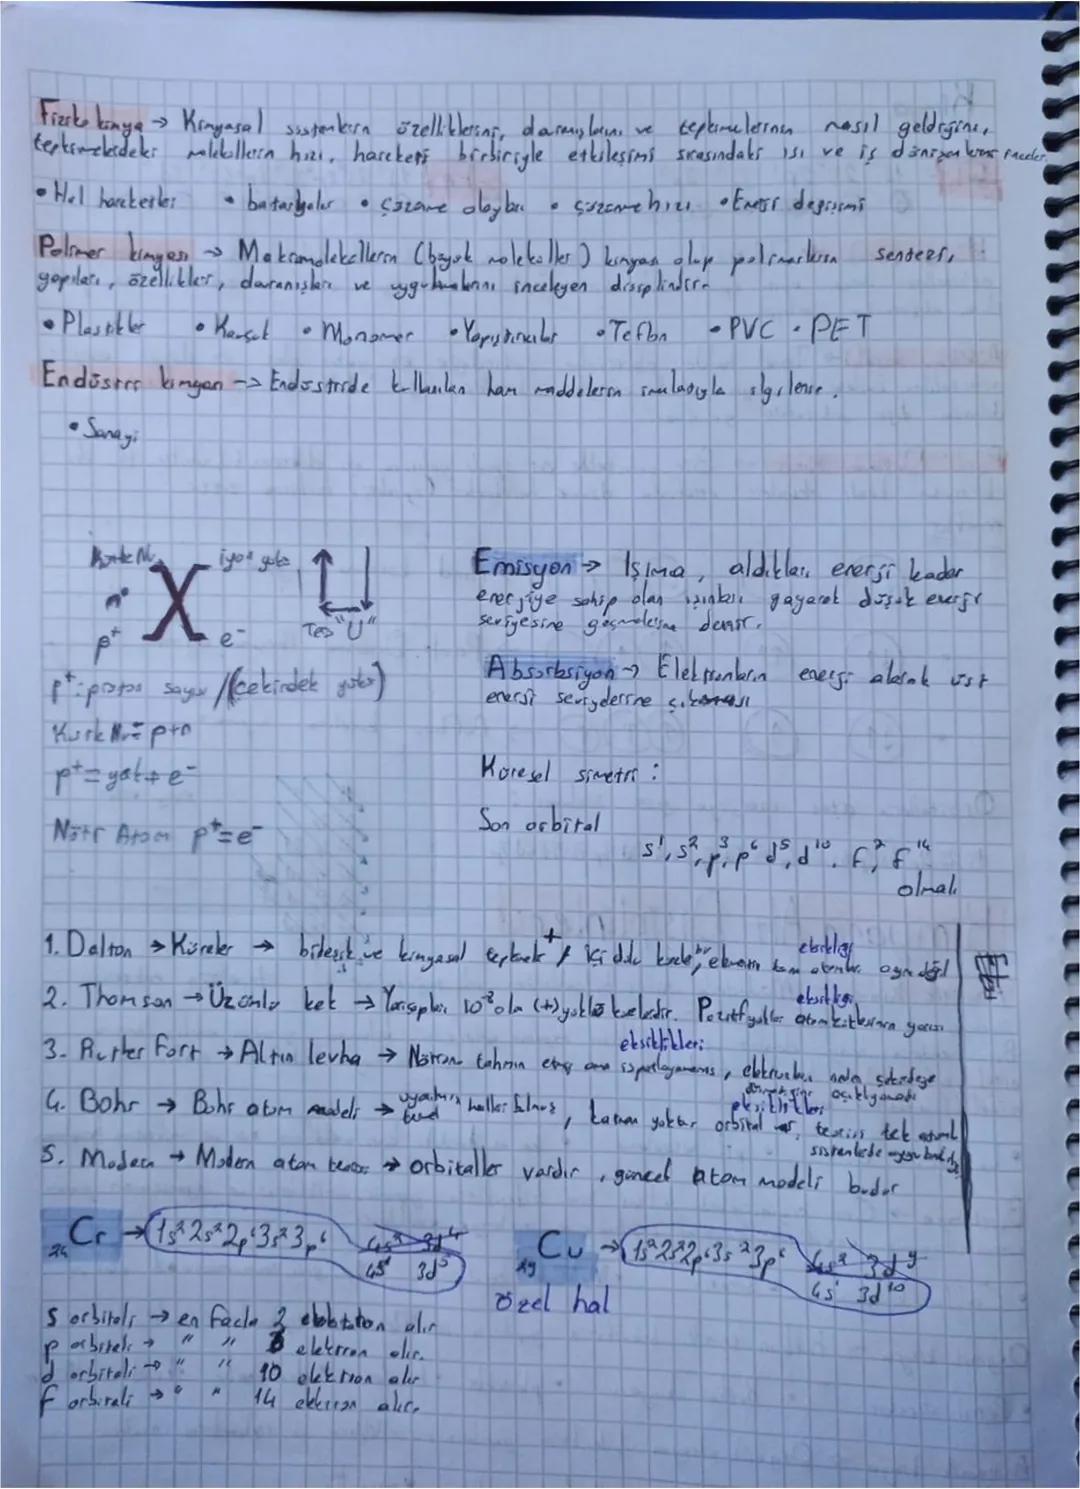 Fiziko kimya → Kimyasal sistemlerin özelliklerini, davranışlarını ve tepkimelerinin nasıl geldiğini,
tepkimelerdeki moleküllerin hızı, hareketi birbiriyle etkileşimi sırasındaki ısı ve iş dönüşümlerini inceler
• Hal hareketleri • bataryalar • çözünme olayları • çözünme hızı • Enerji değişimi
Polimer kimyası → Makromoleküllerin (büyük moleküller) kimyası olup polimerlerin sentezi,
yapıları, özellikleri, davranışları ve uygulamalarını inceleyen disiplindir.
• Plastikler • Kauçuk • Monomer • Yapıştırıcılar • Teflon • PVC • PET
Endüstri kimyası → Endüstride kullanılan ham maddelerin imalatıyla ilgilenir.
• Sanayi
Kütle No iyon yükü
n° X
p⁺ e⁻ Ters "U"
p⁺: proton sayısı / (çekirdek yükü)
Kütle No = p+n
p⁺ = yük + e⁻
Nötr Atom p⁺=e⁻
Emisyon → Işıma, aldıkları enerji kadar
enerjiye sahip olan ışınları yayarak düşük enerji
seviyesine geçmelerine denir.
Absorbsiyon → Elektronların enerji alarak üst
enerji seviyelerine çıkması
Küresel simetri :
Son orbital
s¹, s², p³, p⁶ d⁵, d¹⁰, f⁷, f¹⁴
olmalı
1. Dalton → Küreler → bileşik ve kimyasal tepkime + / içi dolu küre, elementin tüm atomları aynı değil
eksikliği
2. Thomson → Üzümlü kek → Yarıçapları 10⁻⁸ olan (+) yüklü kürelerdir. Pozitif yükler atom kütlesinin yarısı
eksikliği
3. Rutherfort → Altın levha → Nötronu tahmin etmiş ama ispatlayamamış, elektronların neden çekirdeğe
eksiklikleri
düşmediğini açıklayamadı
4. Bohr → Bohr atom modeli → haller bulmuş, katman yoktur orbital var, teorisi tek atomlu
eksiklikleri
sistemlerde
5. Modern → Modern atom teorisi → orbitaller vardır, güncel atom modeli budur
₂₄Cr → 1s² 2s² 2p⁶ 3s² 3p⁶ 4s² 3d⁴
4s¹ 3d⁵
₂₉Cu → 1s² 2s² 2p⁶ 3s² 3p⁶ 4s² 3d⁹
4s¹ 3d¹⁰
özel hal
s orbitali → en fazla 2 elektron alır
p orbitali → " " 6 elektron alır.
d orbitali → " " 10 elektron alır
f orbitali → " " 14 elektron alır.